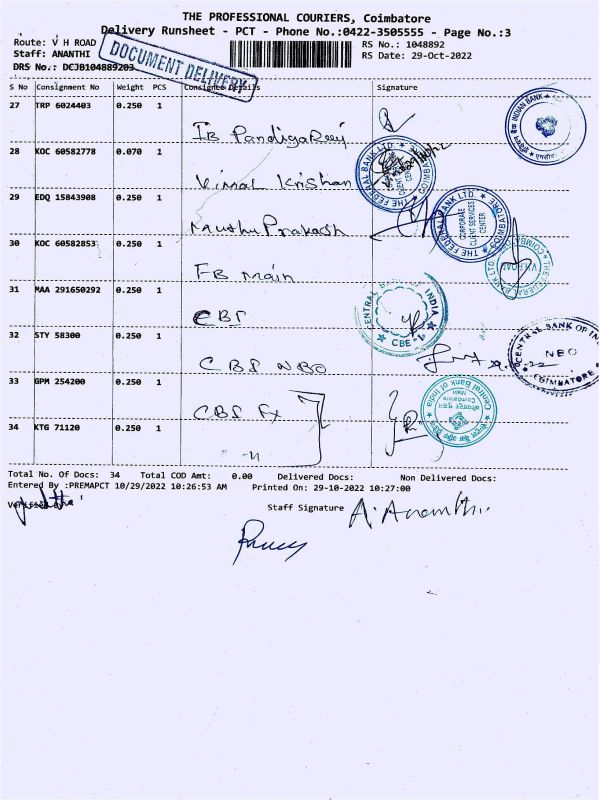 THE PROFESSIONAL COURIERS, Coimbatore
Delivery Runsheet - PCT - Phone No.:0422-3505555 - Page No.:3
Route: V H ROAD
RS No.: 1048892
Staff: ANANTHI
RS Date: 29-Oct-2022
DRS No.: DCJB104889203
DOCUMENT DELIVERY
S No Consignment No Weight PCS Consignee Details Signature
27 TRP 6024403 0.250 1
IB
INDIAN BANK
28 KOC 60582778 0.070 1
Vimal Krishan
THE FEDERAL BANK LTD. COIMBATORE
29 EDQ 15843908 0.250 1
Muthu Prakash
THE FEDERAL BANK LTD. COIMBATORE
CORPORATE
CLIENT SERVICES
CENTER
30 KOC 60582853 0.250 1
FB main
THE FEDERAL BANK LTD. COIMBATORE
V.H.ROAD
31 MAA 291650292 0.250 1
CBI
CENTRAL BANK OF INDIA
CBE
32 STY 58300 0.250 1
CBI NBO
CENTRAL BANK OF
NBO
COIMBATORE
33 GPM 254200 0.250 1
CBI Fx
Central Bank of India
34 KTG 71120 0.250 1
-"
Total No. Of Docs: 34 Total COD Amt: 0.00 Delivered Docs: Non Delivered Docs:
Entered By :PREMAPCT 10/29/2022 10:26:53 AM Printed On: 29-10-2022 10:27:00
Verified By
Staff Signature A. Ananthi.